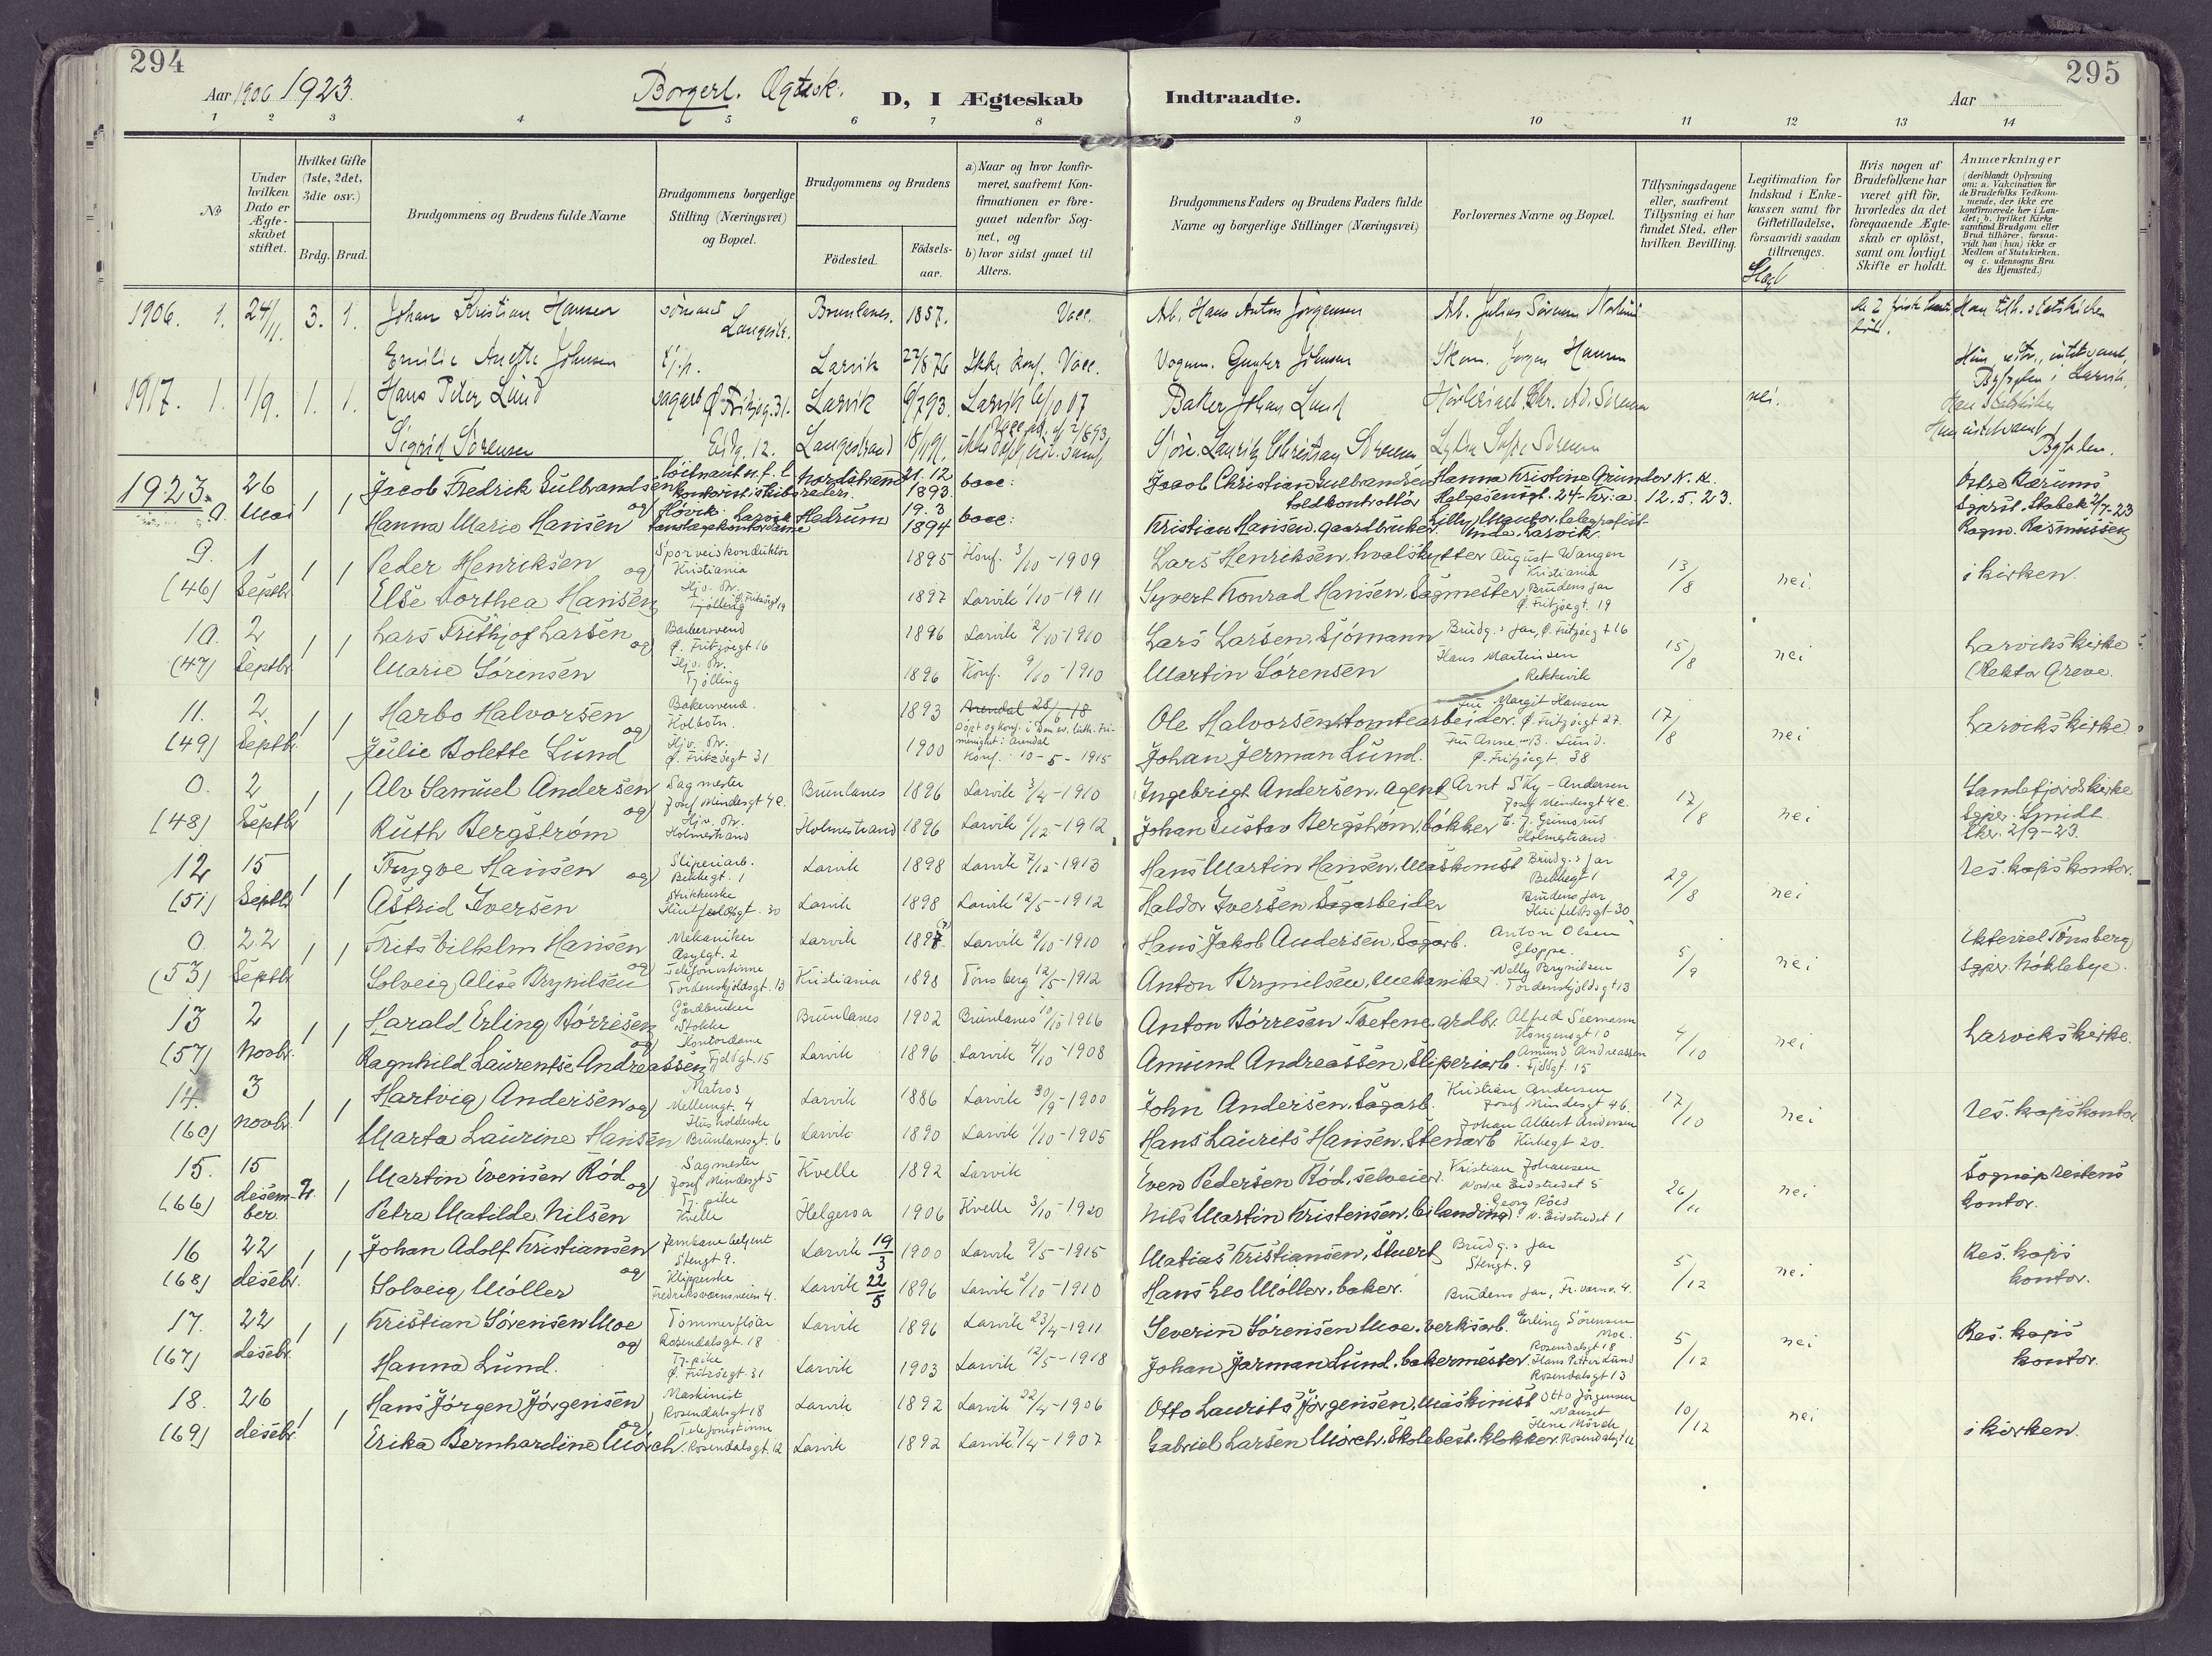 294
295
Aar 1906 1923.
Borgerl. Ægtesk.
D, I Ægteskab
Indtraadte.
Aar
1 2 3 4 5 6 7 8 9 10 11 12 13 14
No
Under hvilken Dato er Ægteskabet stiftet.
Hvilket Gifte (1ste, 2det, 3die osv.)
Brdg. Brud.
Brudgommens og Brudens fulde Navne
Brudgommens borgerlige Stilling (Næringsvei) og Bopæl.
Brudgommens og Brudens
Födested.
Födsels-aar.
a) Naar og hvor konfirmeret, saafremt Konfirmationen er foregaaet udenfor Sognet, og
b) hvor sidst gaaet til Alters.
Brudgommens Faders og Brudens Faders fulde Navne og borgerlige Stillinger (Næringsvei)
Forlovernes Navne og Bopæl.
Tillysningsdagene eller, saafremt Tillysning ei har fundet Sted, efter hvilken Bevilling.
Legitimation for Indskud i Enkekassen samt for Giftetilladelse, forsaavidt saadan tiltrænges.
Hvis nogen af Brudefolkene har været gift för, hvorledes da det foregaaende Ægteskab er oplöst, samt om lovligt Skifte er holdt.
Anmærkninger (deriblandt Oplysning om: a. Vakcination for de Brudefolks Vedkommende, der ikke ere konfirmerede her i Landet; b. hvilket Kirkesamfund Brudgom eller Brud tilhörer, forsaavidt han (hun) ikke er Medlem af Statskirken, og c. udensogns Brudes Hjemsted.)
1906. 1. 24/11. 3. 1. Johan Kristian Hansen sömand Langestr. Brunlanes. 1857. Vacc. Arb. Hans Anton Jörgensen Arb. Julius Sörensen Han tilh. statskirken
Emilie Johnsen Larvik 22/8 76 Ikke konf. Vacc. Vognm. Gunder Johnsen Skom. Jörgen Hansen
1917. 1. 1/9. 1. 1. Hans Peter Lund sagarb Ø. Fritzöeg. 31. Larvik 6/7 93. Larvik 6/10 07 Baker Johan Lund nei. Han Statskirken
Sigrid Sörensen 12. Langestrand Lauritz Christian Sörensen Sörensen Byfogden.
1923. 26 Mai 0. 1 1 Jacob Fredrik Gulbrandsen og Nordstrand 21. 12 1893. vacc: Jacob Christian Gulbrandsen toldkontrollör Hanna Kristine Gründer N. N. Helgesensgt. 24. Kr.a. 12. 5. 23.
Hanna Marie Hansen Larvik Hedrum 19. 3 1894 vacc: Kristian Hansen. gaardbruker. Lilly telegrafist. Larvik. Ragn. Rasmussen
9. (46) 1 Septbr 1 1 Peder Henriksen og Sporveiskonduktör Kristiania 1895 Konf. 3/10-1909 Lars Henriksen, hvalskytter August Wangen Kristiania 13/8 nei. i kirken.
Else Dorthea Hansen Hjv. Dr. Tjölling Ø. Fritzöegt 19 1897 Larvik 1/10-1911 Syvert Konrad Hansen, Sagmester Brudens far Ø. Fritzöegt. 19
10. (47) 2 Septbr 1 1 Lars Frithjof Larsen og Bakersvend Ø. Fritzöegt 16 1896 Larvik 2/10-1910 Lars Larsen, Sjömann Brudg.s far, Ø. Fritzöegt 16 15/8 nei Larvikskirke (Rektor Greve.
Marie Sörensen Hjv. Dr. Tjölling 1896 Konf. 9/10-1910 Martin Sörensen Hans Martinsen Rekkevik
11. (49) 2. Septbr. 1 1 Harbo Halvorsen og Bakersvend. Kolbotn. 1893 Arendal 28/6-18 Döpt og konf. i Den ev. luth. Frimenight i Arendal Ole Halvorsen, tomtearbeider. Fru Margit Hansen Ø. Fritzöegt 27. 17/8 nei Larvikskirke
Julie Bolette Lund Hjv. Dr. Ø. Fritzöegt 31 1900 Konf. 10-5-1915 Johan Jerman Lund. Fru Anne B. Lund. Ø. Fritzöegt. 38
0. (48) 2 Septbr 1 1 Alv Samuel Andersen og Sagmester Josef Mindesgt 4c. Brunlanes 1896 Larvik 3/4-1910 Ingebrigt Andersen, agent Arnt Sky-Andersen Josef Mindesgt 4c. 17/8 nei Sandefjordskirke Sgpr. Smidt
Ruth Bergström Hjv. Dr. Holmestrand Holmestrand 1896 Larvik 1/12-1912 Johan Gustav Bergström, bökker Grimsrud Holmestrand. 2/9-23.
12 (51) 15 Septbr 1 1 Trygve Hansen og Sliperiarb. Bekkegt. 1 Larvik 1898 Larvik 7/12-1913 Hans Martin Hansen, Maskinist Brudg.s far Bekkegt 1 29/8 nei Res. kaps kontor.
Astrid Iversen Strikkerske Huitfeldtsgt. 30 Larvik 1898 Larvik 12/5-1912 Haldor Iversen Sagarbeider Brudens far Huitfeldtsgt-30
0. (53) 22 Septbr 1 1 Frits Vilhelm Hansen og Mekaniker Asylgt. 2 Larvik 1897. Larvik 2/10-1910 Hans Jakob Andersen, Sagarb. Anton Olsen Gloppe. 5/9 nei Ekteviet Tönsberg Sgpr. Nöklebye.
Solveig Alise Brynilsen Telefonistinne Tordenskjoldsgt. 13 Kristiania 1898 Tönsberg 12/5-1912 Anton Brynilsen, mekaniker. Nelly Brynilsen Tordenskjoldsgt 13
13 (57) 2 Novbr. 1 1 Harald Erling Börresen og Gårdbruker Stokke Brunlanes 1902 Brunlanes 10/10 1916 Anton Börresen Tvetene, grdbr. Alfred Seemann Kongensgt 10 4/10 nei Larvikskirke.
Ragnhild Laurentse Andreassen Kontordame Fjeldgt. 15 Larvik 1896 Larvik 4/10-1908 Amund Andreassen, Sliperiarb. Amund Andreassen Fjeldgt. 15
14. (60) 3 Novbr. 1 1 Hartvig Andersen og Matros Mellemgt. 4 Larvik 1886 Larvik 30/9-1900 John Andersen, Sagarb. Kristian Andersen Josef Mindesgt 46. 17/10 nei Res. kapskontor.
Marta Laurine Hansen Husholderske Brunlanesgt. 6 Larvik 1890 Larvik 1/10-1905 Hans Laurits Hansen, Stenarb Johan Albert Andersen Kirkegt 20.
15. (66) 15 desember. 2. 1 Martin Evensen Röd og Sagmester Josef Mindesgt 5 Kvelle 1892 Larvik Even Pedersen Röd, selveier. Kristian Johansen Nordre Eidstredet 5 26/11 nei Sogneprestens kontor.
Petra Matilde Nilsen Tj. pike Kvelle Helgeroa 1906 Kvelle 3/10-1920 Nils Martin Kristensen, Georg Röed N. Eidstredet 1
16 (68) 22 desebr. 1 1 Johan Adolf Kristiansen og Jernbanebetjent Stengt 9. Larvik 19/3 1900 Larvik 9/5-1915 Matias Kristiansen, Stuert Brudg.s far Stengt. 9 5/12 nei Res. kaps kontor.
Solveig Möller Klipperske Fredriksværnsveien 4. Larvik 22/5 1896 Larvik 2/10-1910 Hans Leo Möller, baker. Brudens far, Fr. værnv. 4.
17. (67) 22 desebr. 1 1 Kristian Sörensen Moe og Tömmerflöter Rosendalsgt. 18 Larvik 1896 Larvik 23/4-1911 Severin Sörensen Moe. verksarb. Erling Sörensen Moe. Rosendalsgt 18 5/12 nei Res. kaps kontor.
Hanna Lund. Tj. pike Ø. Fritzöegt. 31 Larvik 1903 Larvik 12/5-1918 Johan Jarman Lund. bakermester. Hans Petter Lund Rosendalsgt 13
18. (69) 26 desebr. 1 1 Hans Jörgen Jörgensen og Maskinist Rosendalsgt 18 Larvik 1892 Larvik 22/4-1906 Otto Laurits Jörgensen, Maskinist Otto Jörgensen Nanset 10/12 nei i kirken.
Erika Bernhardine Mörch. Telefonistinne Rosendalsgt. 12 Larvik 1892 Larvik 7/4-1907 Gabriel Larsen Mörch. Skolebest. klokker. Mörch Rosendalsgt 12